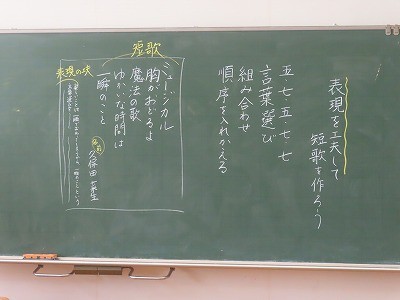 表現を工夫して
短歌を作ろう
五七・五・七・七
言葉選び
組み合わせ
順序を入れかえる
短歌
ミュージカル
胸がおどるよ
魔法の歌
ゆかいな時間は
一瞬のこと
名前
久保田
表現の